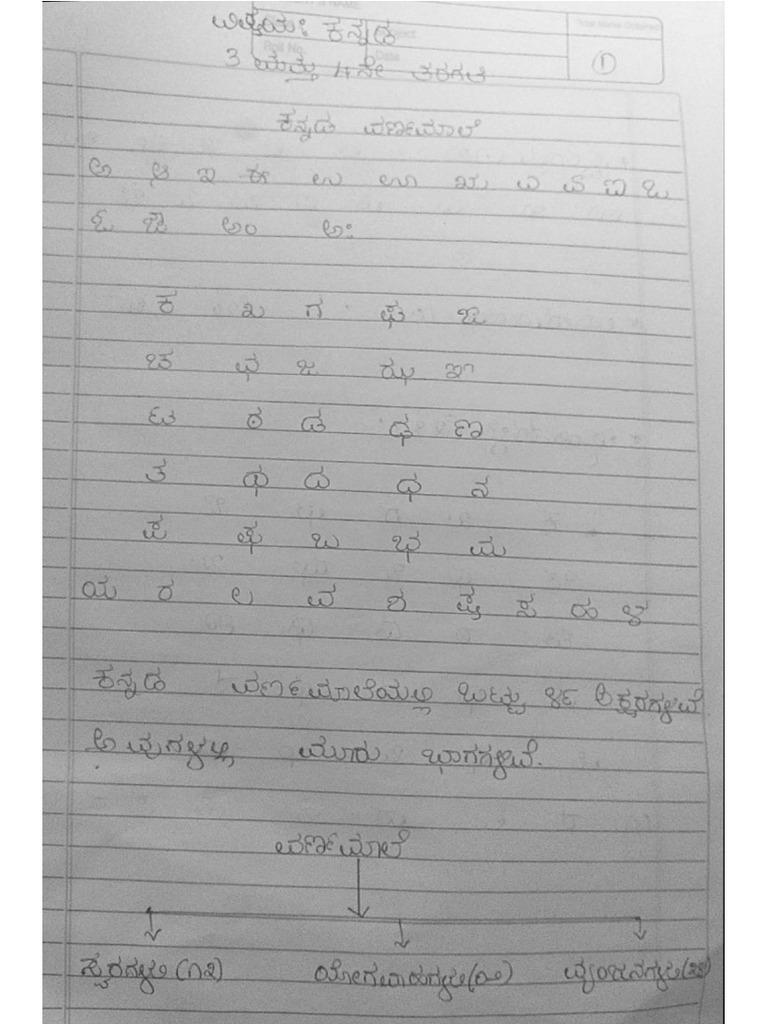 ವಿಷಯಃ ಕನ್ನಡ
3 ಮತ್ತು 4ನೇ ತರಗತಿ
①
Roll No.
Date
ಕನ್ನಡ ವರ್ಣಮಾಲೆ
ಅ ಆ ಇ ಈ ಉ ಊ ಋ ಎ ಏ ಐ ಒ
ಓ ಔ ಅಂ ಅಃ
ಕ ಖ ಗ ಘ ಙ
ಚ ಛ ಜ ಝ ಞ
ಟ ಠ ಡ ಢ ಣ
ತ ಥ ದ ಧ ನ
ಪ ಫ ಬ ಭ ಮ
ಯ ರ ಲ ವ ಶ ಷ ಸ ಹ ಳ
ಕನ್ನಡ ವರ್ಣಮಾಲೆಯಲ್ಲಿ ಒಟ್ಟು ೪೯ ಅಕ್ಷರಗಳಿವೆ
ಅವುಗಳಲ್ಲಿ ಮೂರು ಭಾಗಗಳಿವೆ.
ವರ್ಣಮಾಲೆ
ಸ್ವರಗಳು (೧೩) ಯೋಗವಾಹಗಳು(೦೨) ವ್ಯಂಜನಗಳು